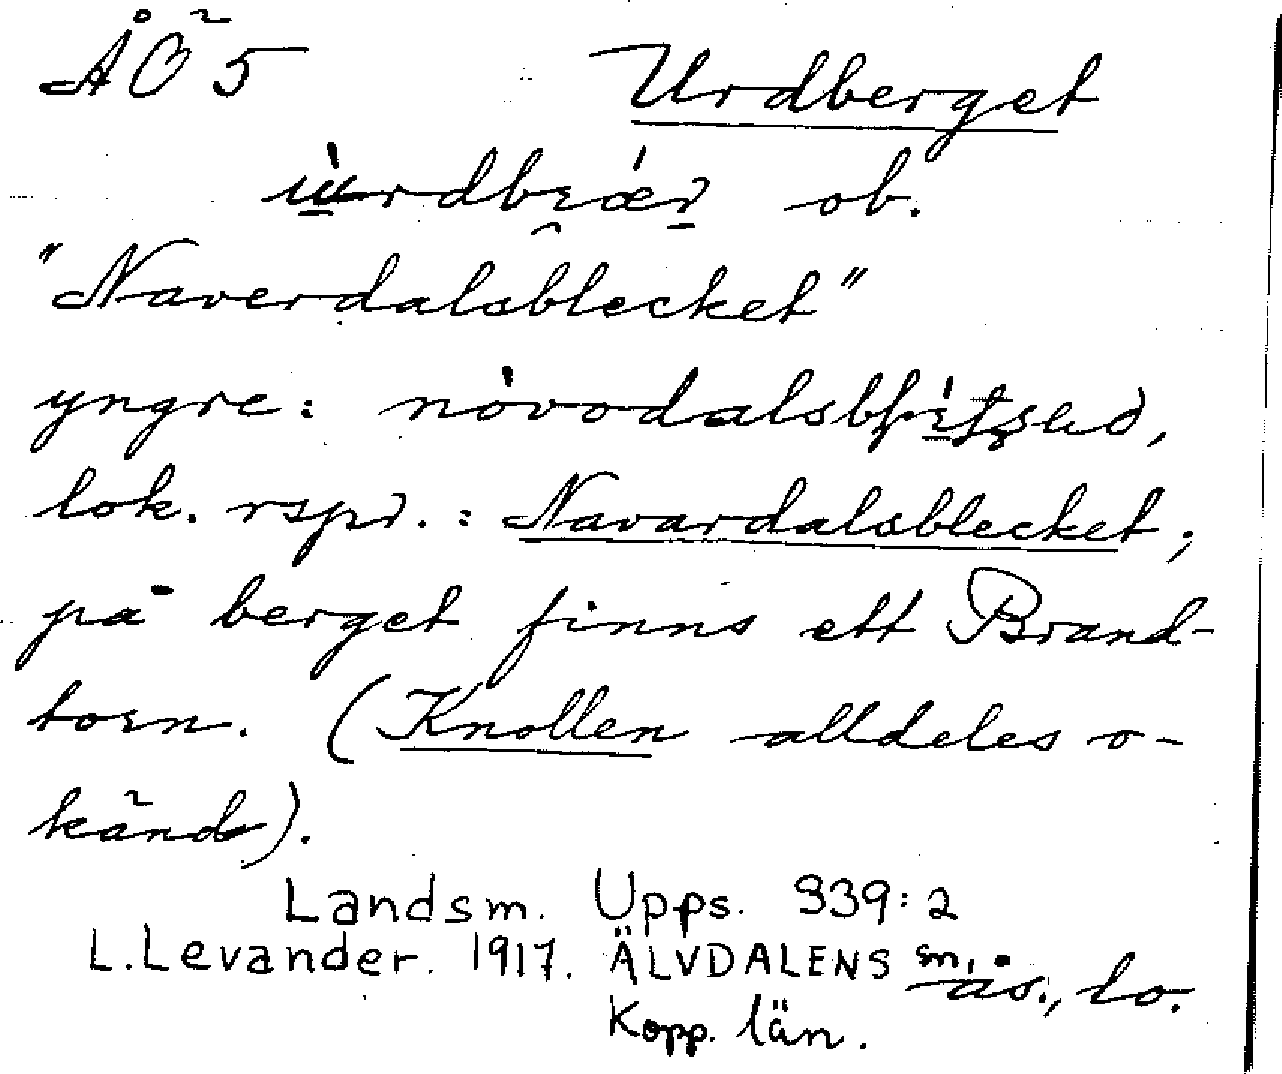 ÅÖ 5 Urdberget
ob.
"Naverdalsblecket"
yngre:
lok. rspr.: Navardalsblecket;
på berget finns ett Brand-
torn. (Knollen alldeles o-
känd).
Landsm. Upps. 339:2
L. Levander. 1917. ÄLVDALENS sn, ås., lo.
Kopp. län.